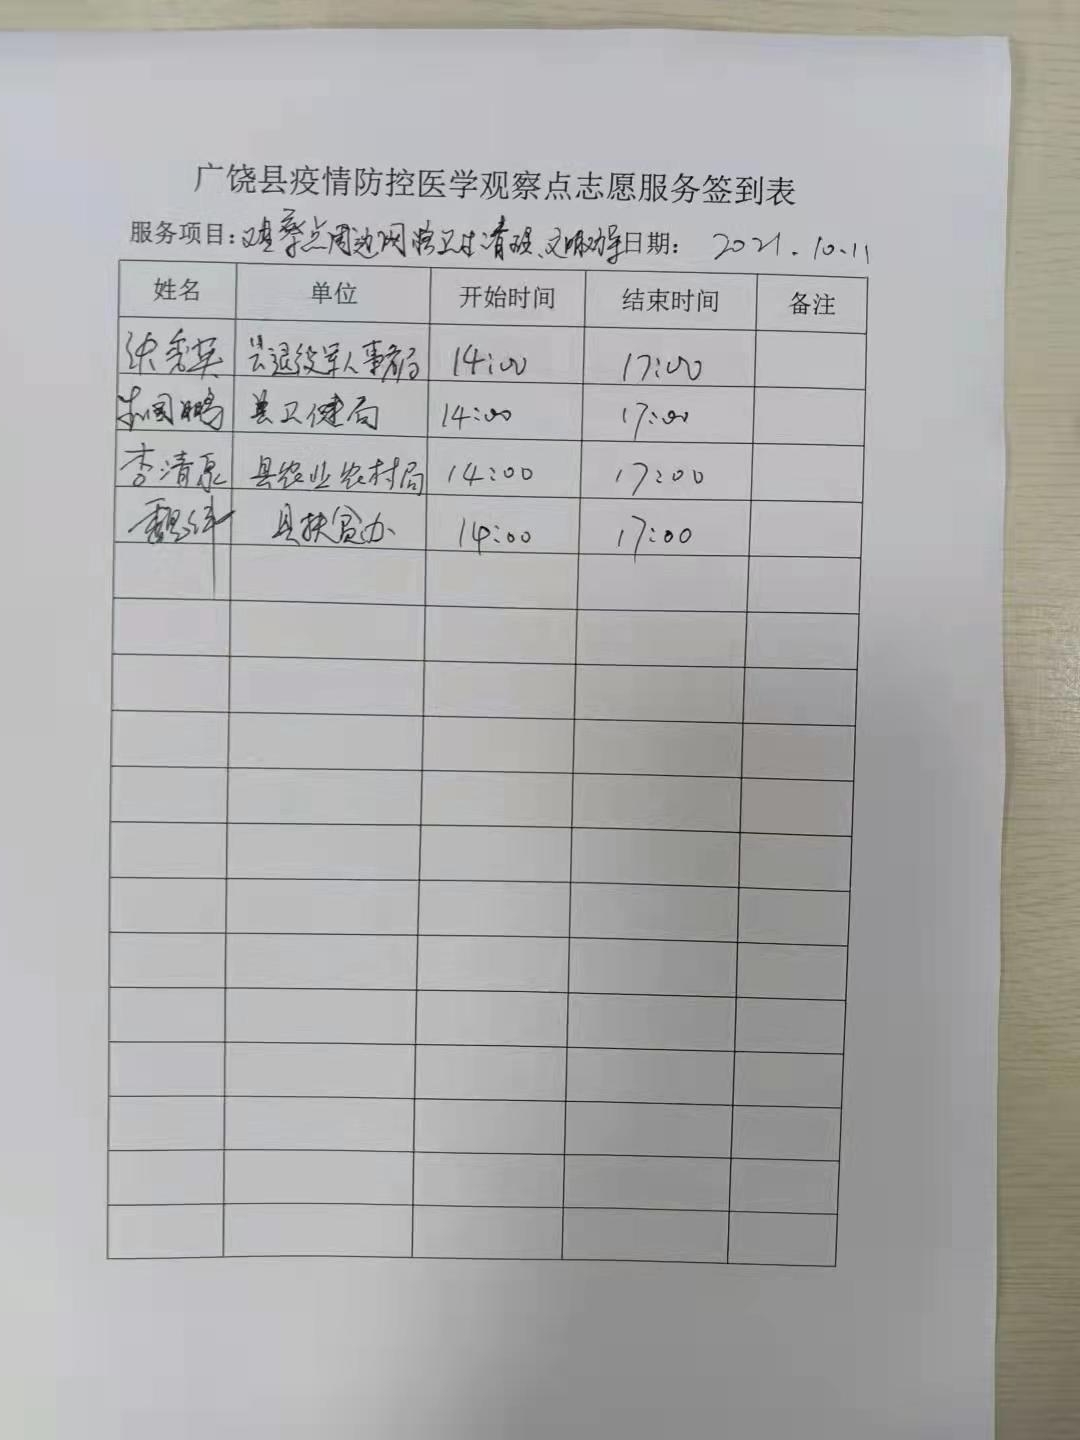 广饶县疫情防控医学观察点志愿服务签到表
服务项目：观察点周边网格卫生清理、文明劝导日期： 2021.10.11
姓名 单位 开始时间 结束时间 备注
张秀英 县退役军人事务局 14:00 17:00
国鹏 县卫健局 14:00 17:00
李清泉 县农业农村局 14:00 17:00
魏 县扶贫办 14:00 17:00